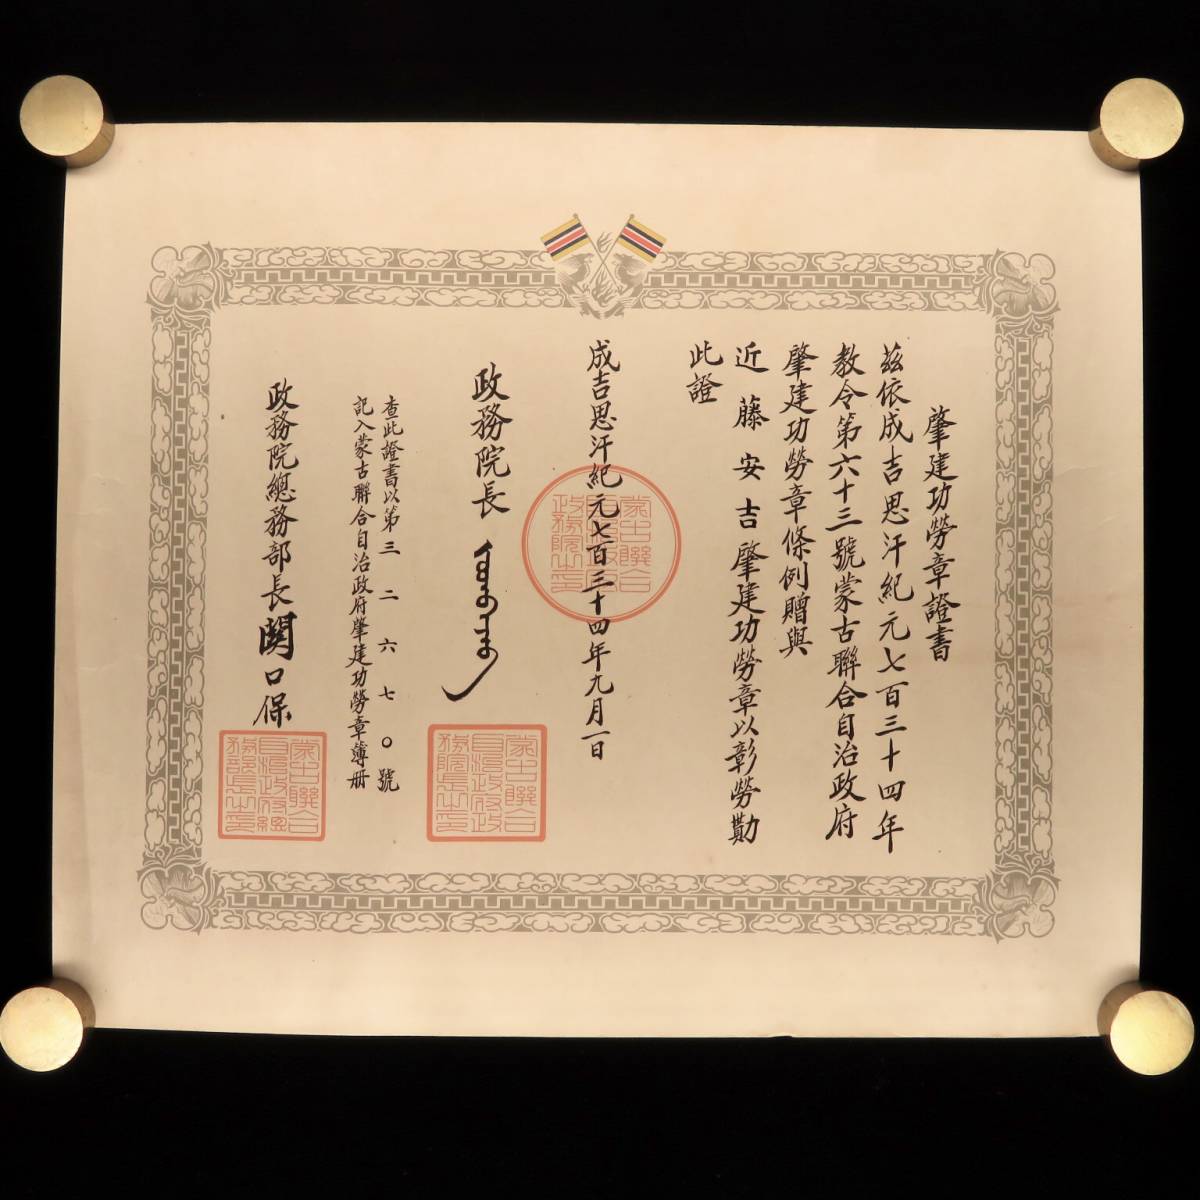 肇建功勞章證書
茲依成吉思汗紀元七百三十四年
教令第六十三號蒙古聯合自治政府
肇建功勞章條例贈與
近藤安吉肇建功勞章以彰勞勩
此證
成吉思汗紀元七百三十四年九月一日
蒙古聯合
自治政府
政務院之印
政務院長
蒙古聯合
自治政府政
務院長之印
查此證書以第三二六七〇號
記入蒙古聯合自治政府肇建功勞章簿册
政務院總務部長関口保
蒙古聯合
自治政府總
務部長之印